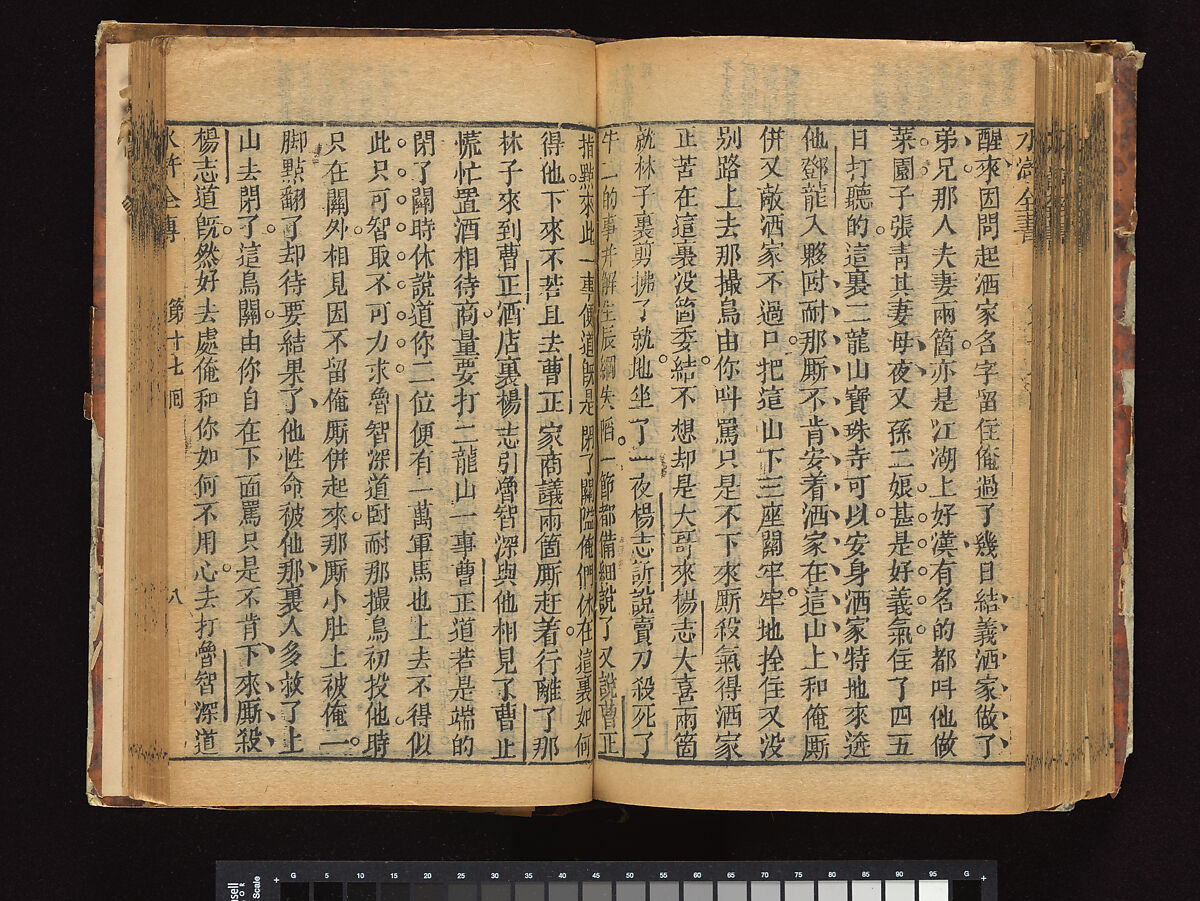 水滸全書
醒來因問起洒家名字留住俺過了幾日結義洒家做了
弟兄那人夫妻兩箇亦是江湖上好漢有名的都呌他做
菜園子張靑其妻母夜叉孫二娘甚是好義氣住了四五
日打聽的這裏二龍山寶珠寺可以安身洒家特地來逩
他鄧龍入夥叵耐那厮不肯安着洒家在這山上和俺厮
併又敵洒家不過只把這山下三座關牢牢地拴住又没
别路上去那撮鳥由你呌罵只是不下來厮殺氣得洒家
正苦在這裏没箇委結不想却是大哥來楊志大喜兩箇
就林子裏剪拂了就地坐了一夜楊志訴說賣刀殺死了
牛二的事并解生辰綱失陷一節都備細說了又說曹正
指點來此一事便道旣是閉了關隘俺們休在這裏如何
得他下來不若且去曹正家商議兩箇厮赶着行離了那
林子來到曹正酒店裏楊志引魯智深與他相見了曹正
慌忙置酒相待商量要打二龍山一事曹正道若是端的
閉了關時休說道你二位便有一萬軍馬也上去不得似
此只可智取不可力求魯智深道叵耐那撮鳥初投他時
只在關外相見因不留俺厮併起來那厮小肚上被俺一
脚點翻了却待要結果了他性命被他那裏人多救了上
山去閉了這鳥關由你自在下面罵只是不肯下來厮殺
楊志道旣然好去處俺和你如何不用心去打魯智深道
水滸全傳
第十七囘
八